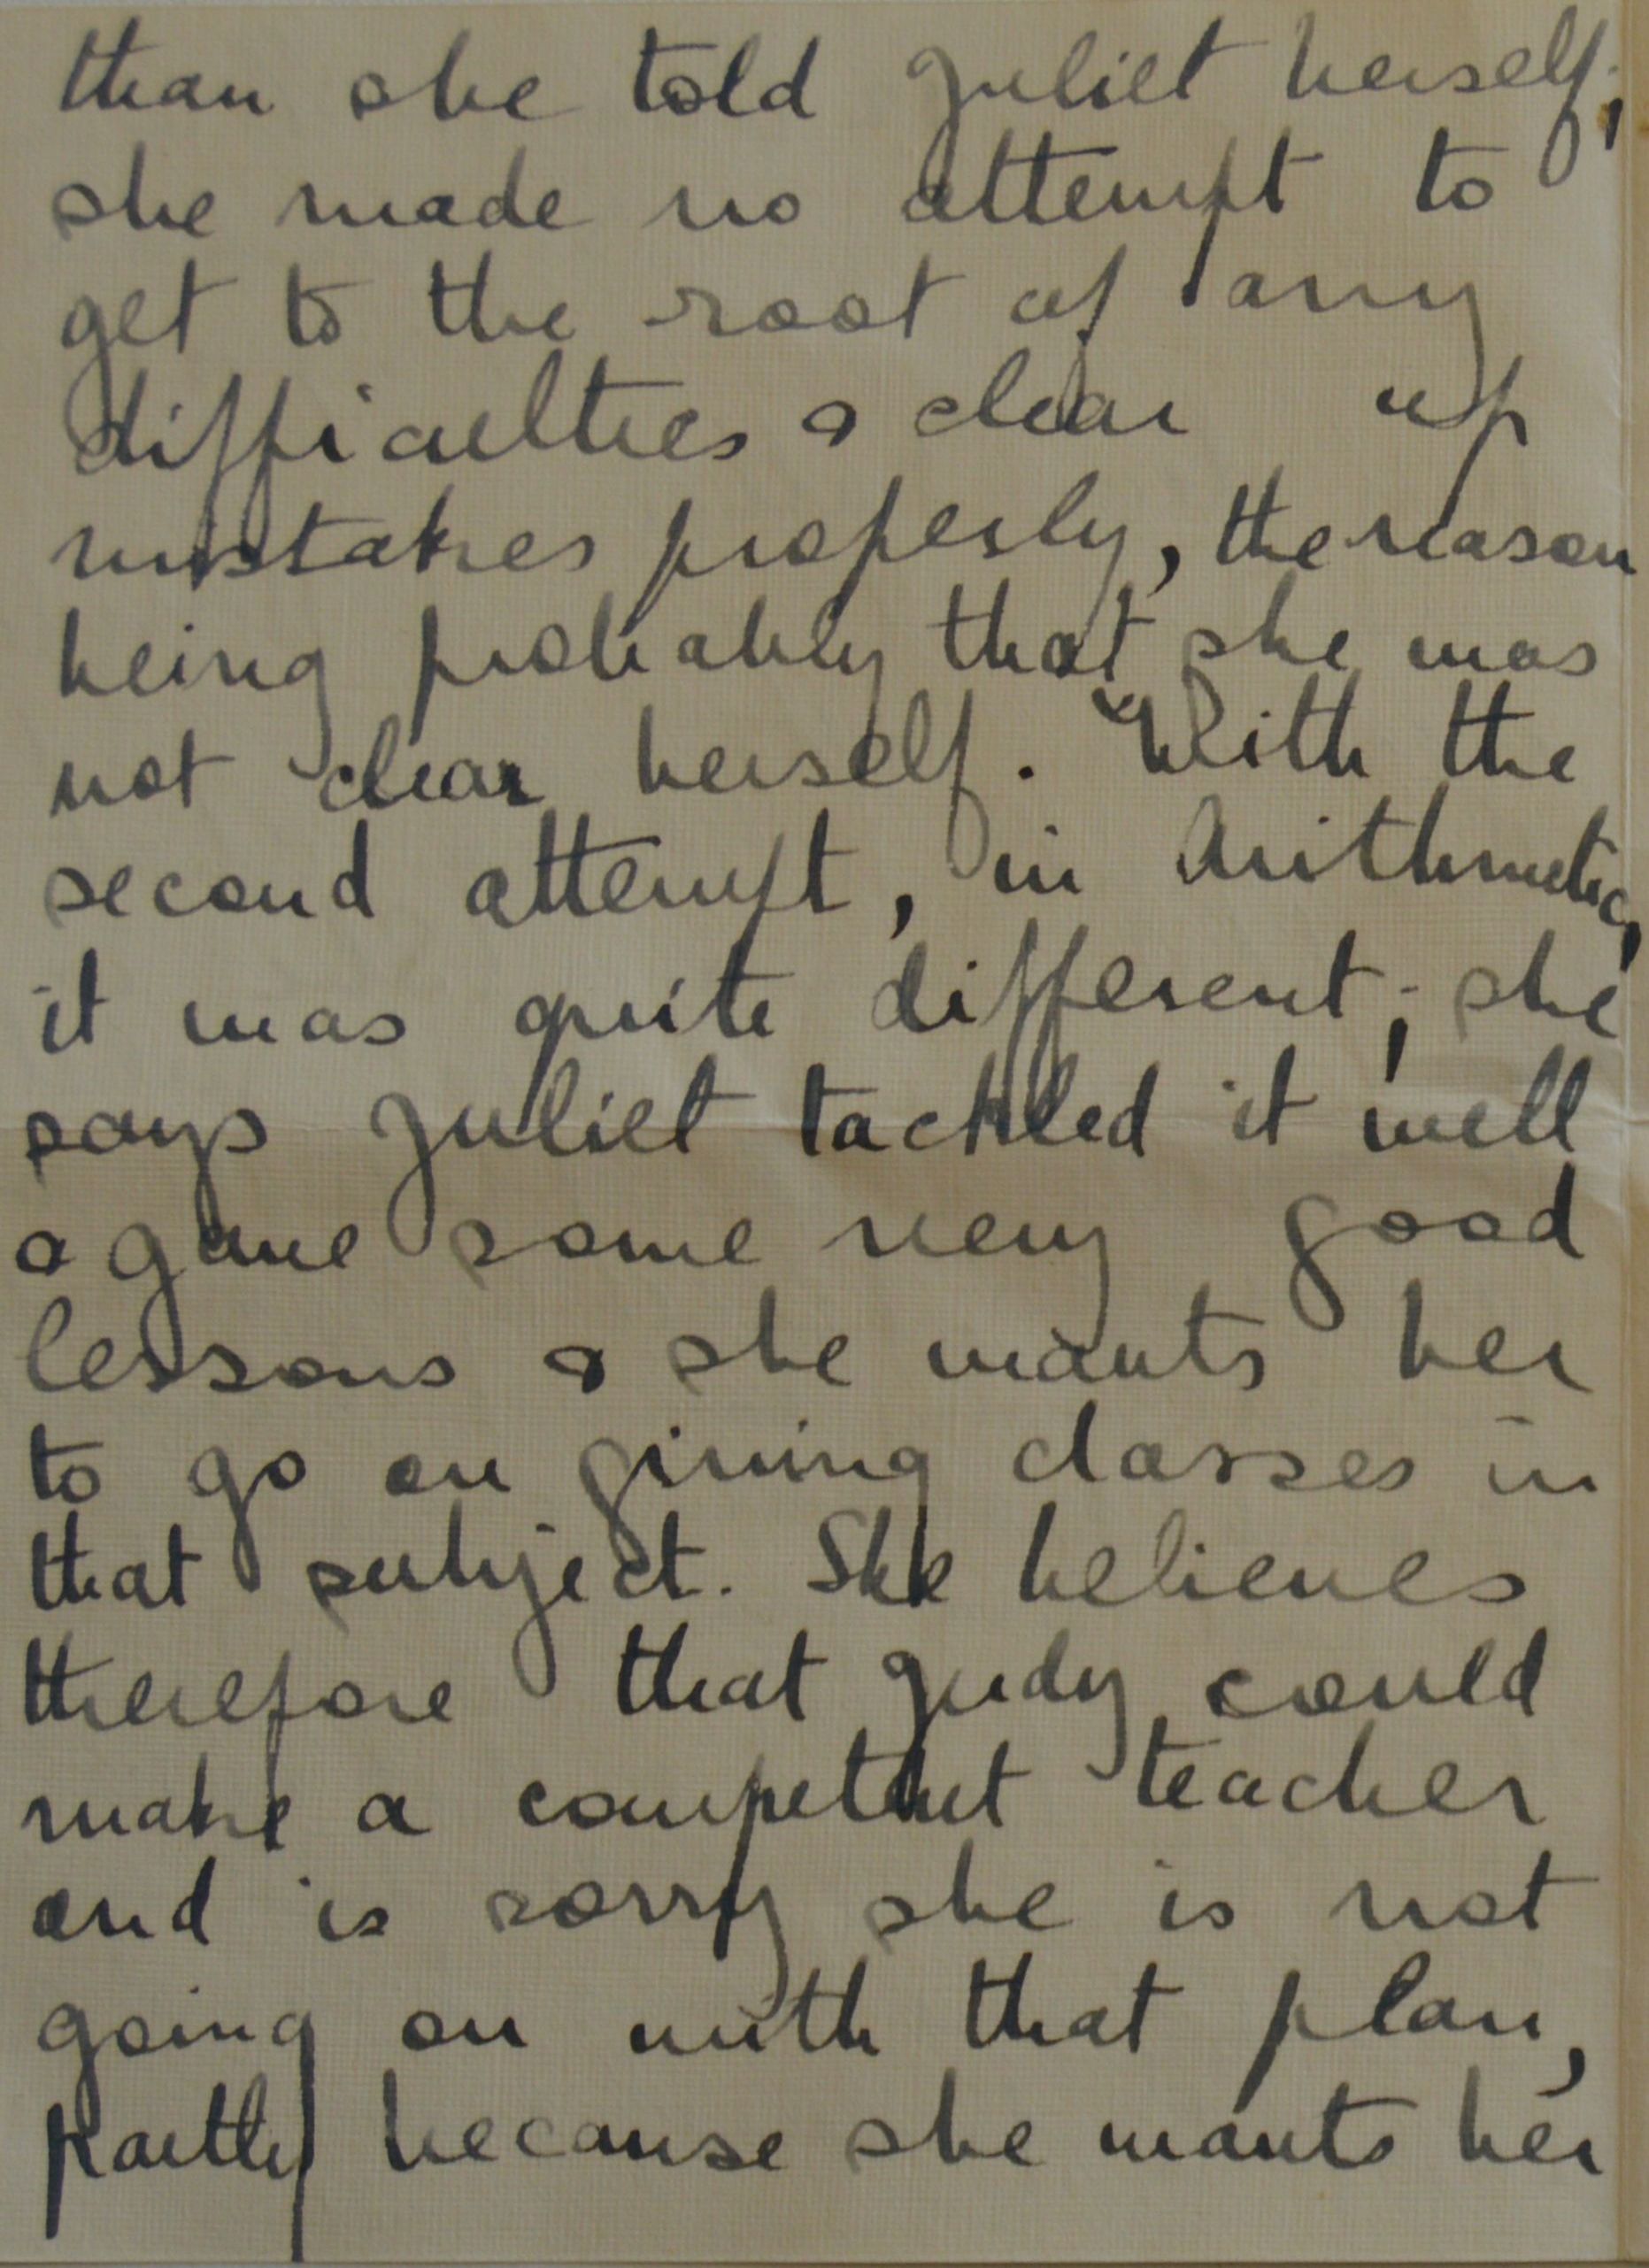 than she told Juliet herself;
she made no attempt to
get to the root of any
difficulties & clear up
mistakes properly, the reason
being probably that she was
not clear herself. With the
second attempt, in Arithmetic,
it was quite different; she
says Juliet tackled it well
& gave some very good
lessons & she wants her
to go on giving classes in
that subject. She believes
therefore that Judy could
make a competent teacher
and is sorry she is not
going on with that plan,
partly because she wants her